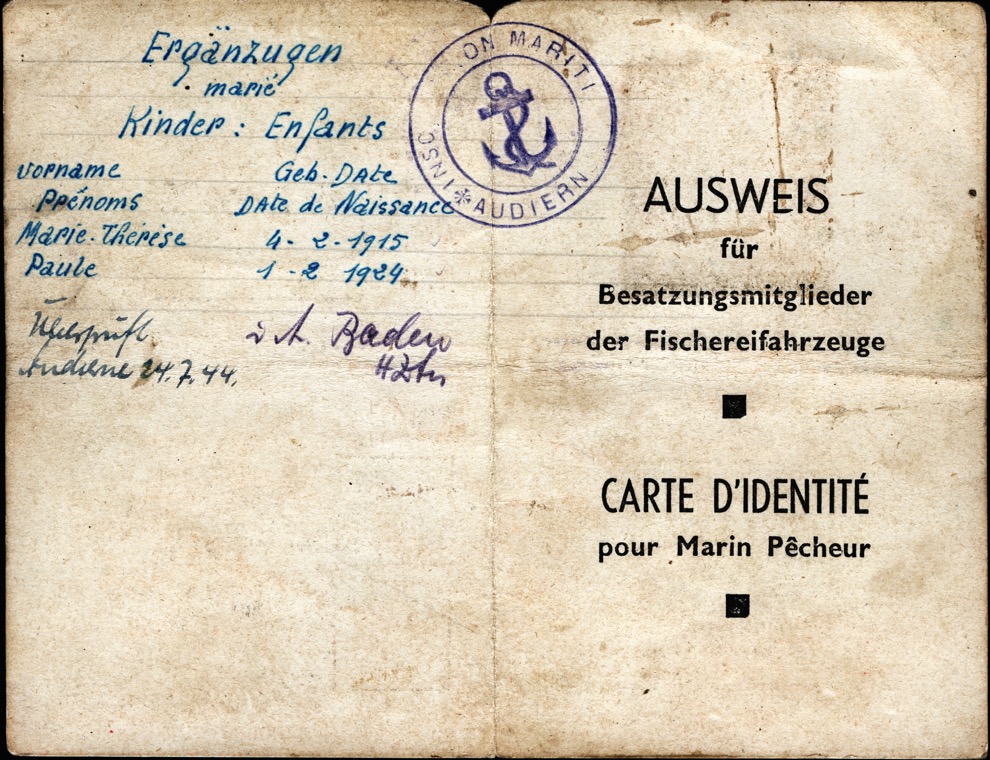 Ergänzugen
marié
Kinder : Enfants
vorname Geb. Date
Prénoms Date de Naissance
Marie-Thérèse 4 - 2 - 1915
Paule 1 - 2 1924
Überprüft
24.7.44.
Baden
ON MARITI
INSC * AUDIERN
AUSWEIS
für
Besatzungsmitglieder
der Fischereifahrzeuge
CARTE D'IDENTITÉ
pour Marin Pêcheur